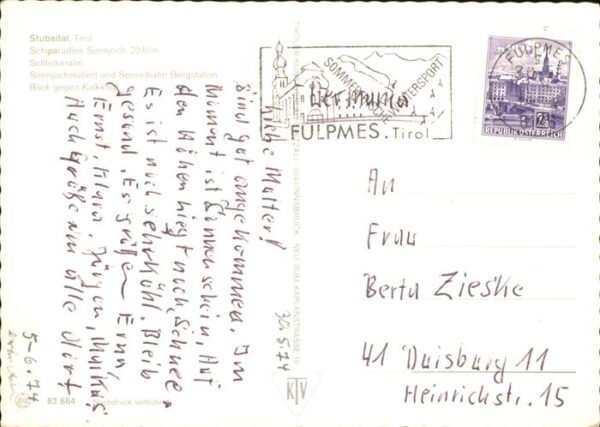 Stubaital, Tirol
Schiparadies Sennjoch, 2240m
Schlickeralm
Sennjochstuberl und Sesselbahn-Bergstation
Blick gegen Kalkkögel
Liebe Mutter!
Sind gut angekommen. Im
Moment ist Sonnenschein, Auf
den Höhen liegt noch Schnee.
Es ist noch sehr kühl. Bleib
gesund. Es grüßen Erna,
Ernst, Klara, Jürgen, Markus.
Auch Grüße an alle dort
30.5.74
5-6.74
82 664 Nachdruck verboten
KTV
SOMMER
WINTERSPORT
FULPMES. Tirol
FULPMES
REPUBLIK ÖSTERREICH
An
Frau
Berta Zieske
41 Duisburg 11
Heinrichstr. 15